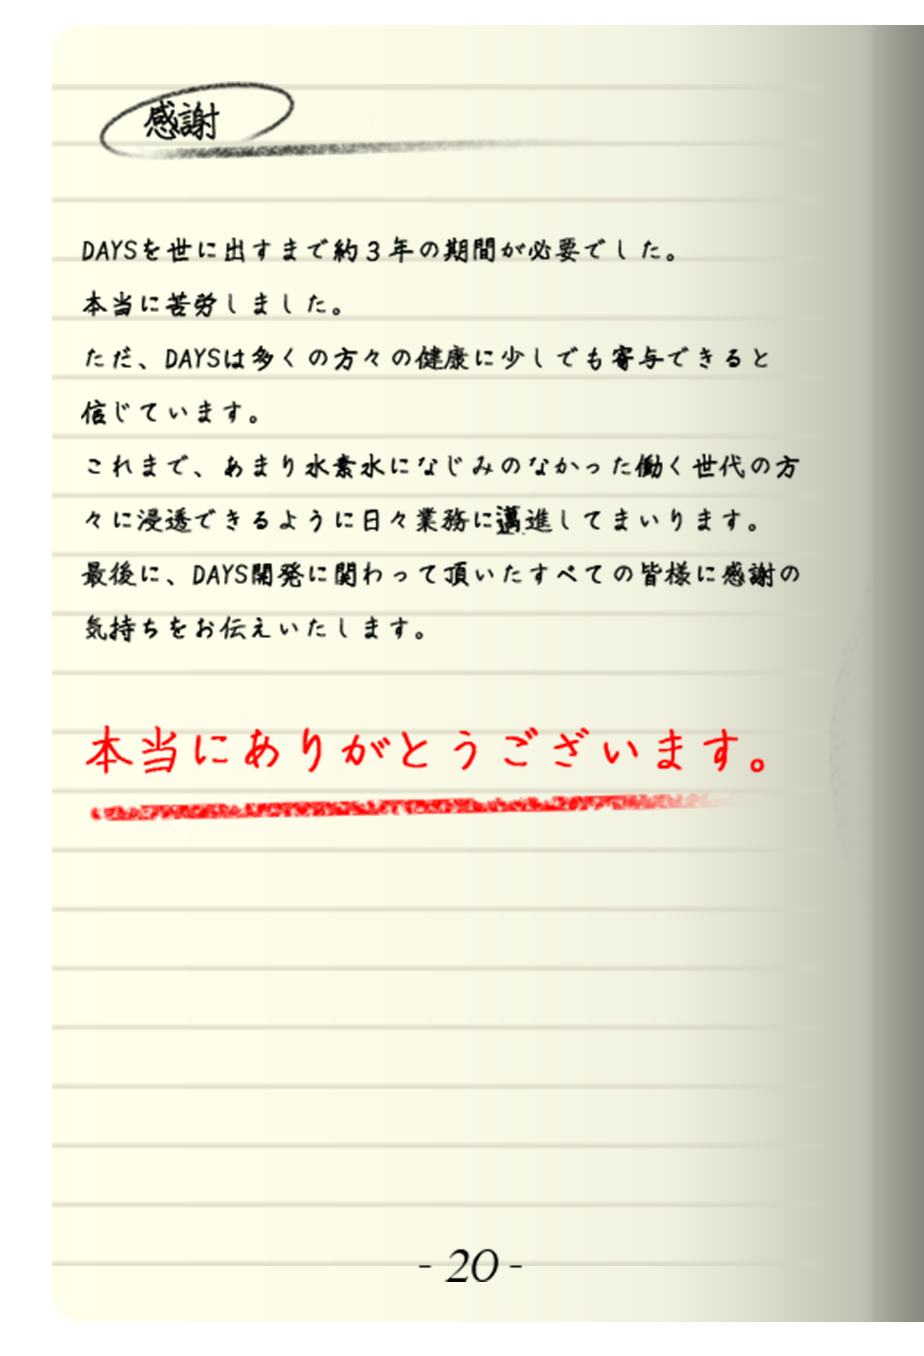 感謝
DAYSを世に出すまで約３年の期間が必要でした。
本当に苦労しました。
ただ、DAYSは多くの方々の健康に少しでも寄与できると
信じています。
これまで、あまり水素水になじみのなかった働く世代の方
々に浸透できるように日々業務に邁進してまいります。
最後に、DAYS開発に関わって頂いたすべての皆様に感謝の
気持ちをお伝えいたします。
本当にありがとうございます。
- 20 -